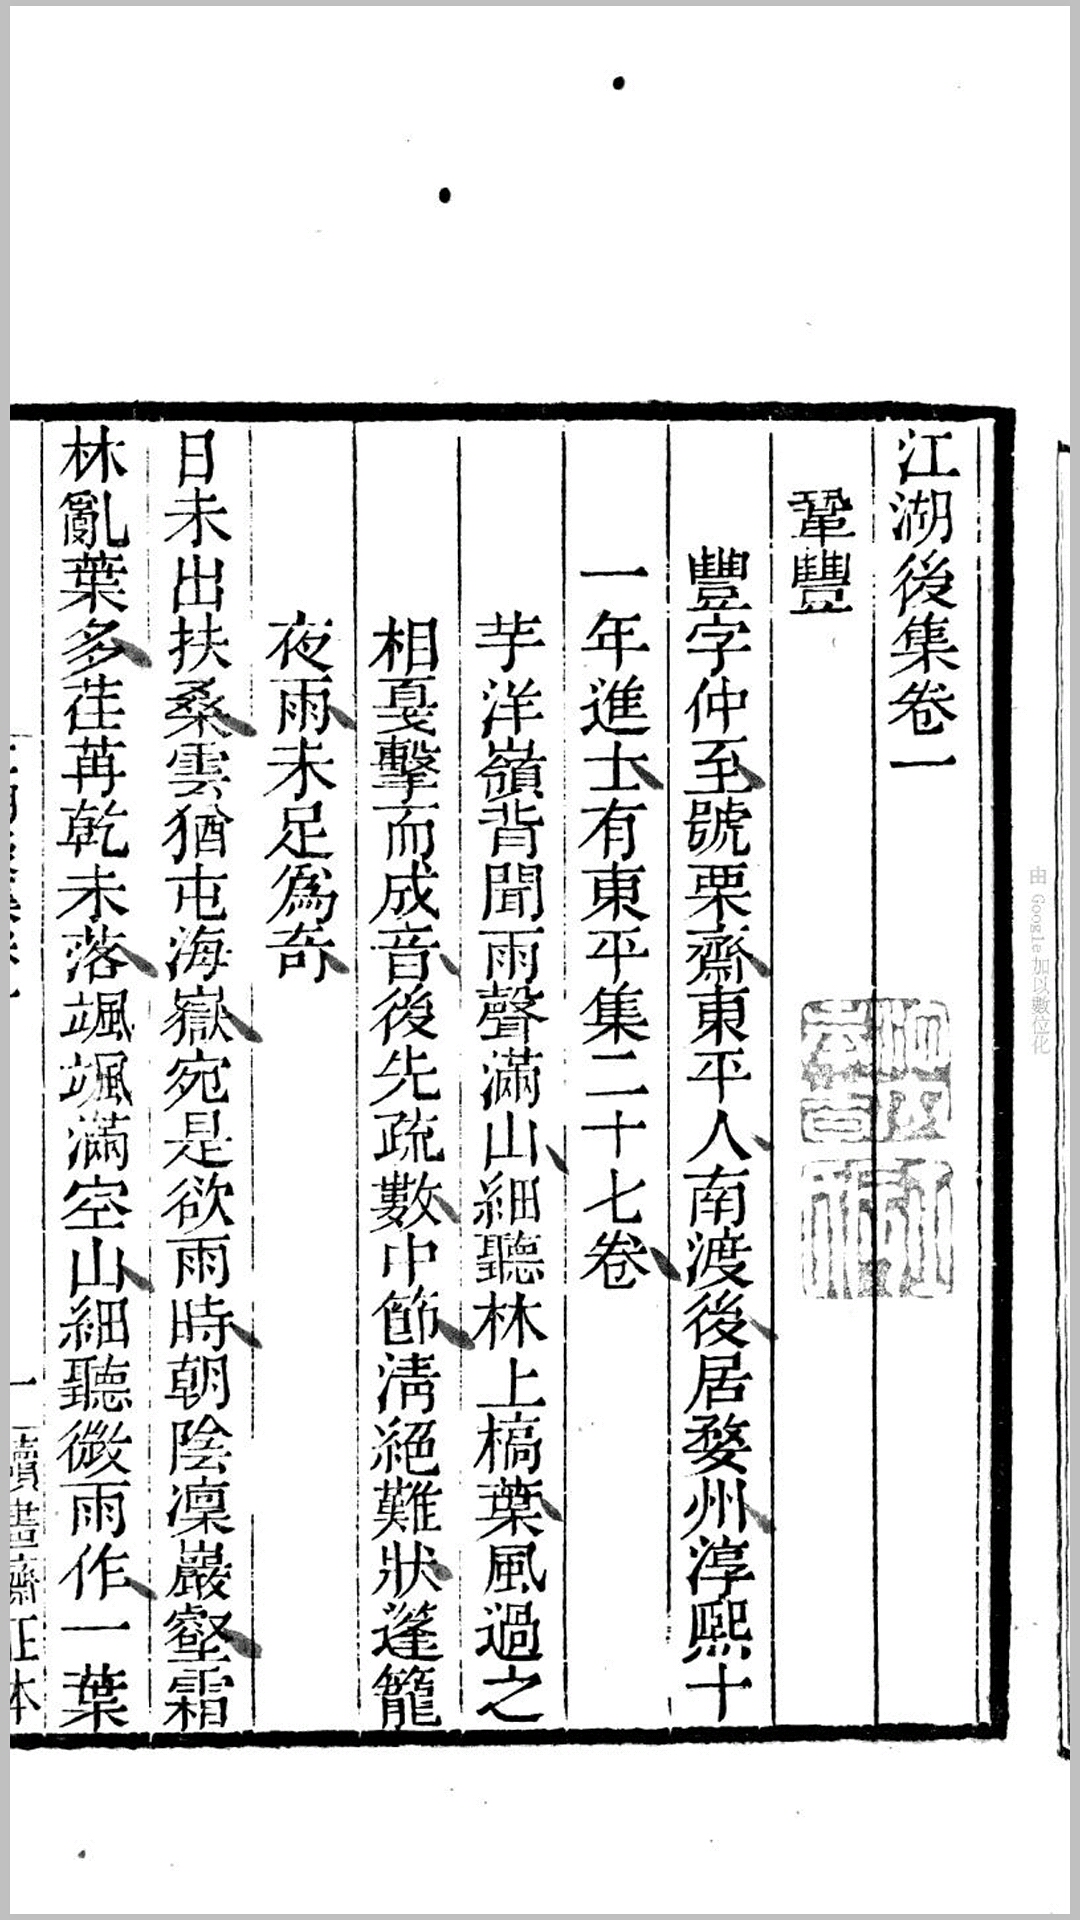 江湖後集卷一
鞏豐
豐字仲至號栗齋東平人南渡後居婺州淳熙十
一年進士有東平集二十七卷
芋洋嶺背聞雨聲滿山細聽林上槁葉風過之
相戛擊而成音後先疏數中節清絕難狀蓬籠
夜雨未足爲奇
日未出扶桑雲猶屯海嶽宛是欲雨時朝陰凜巖壑霜
林亂葉多荏苒乾未落颯颯滿空山細聽微雨作一葉
一 讀書齋正本
由 Google 加以數位化